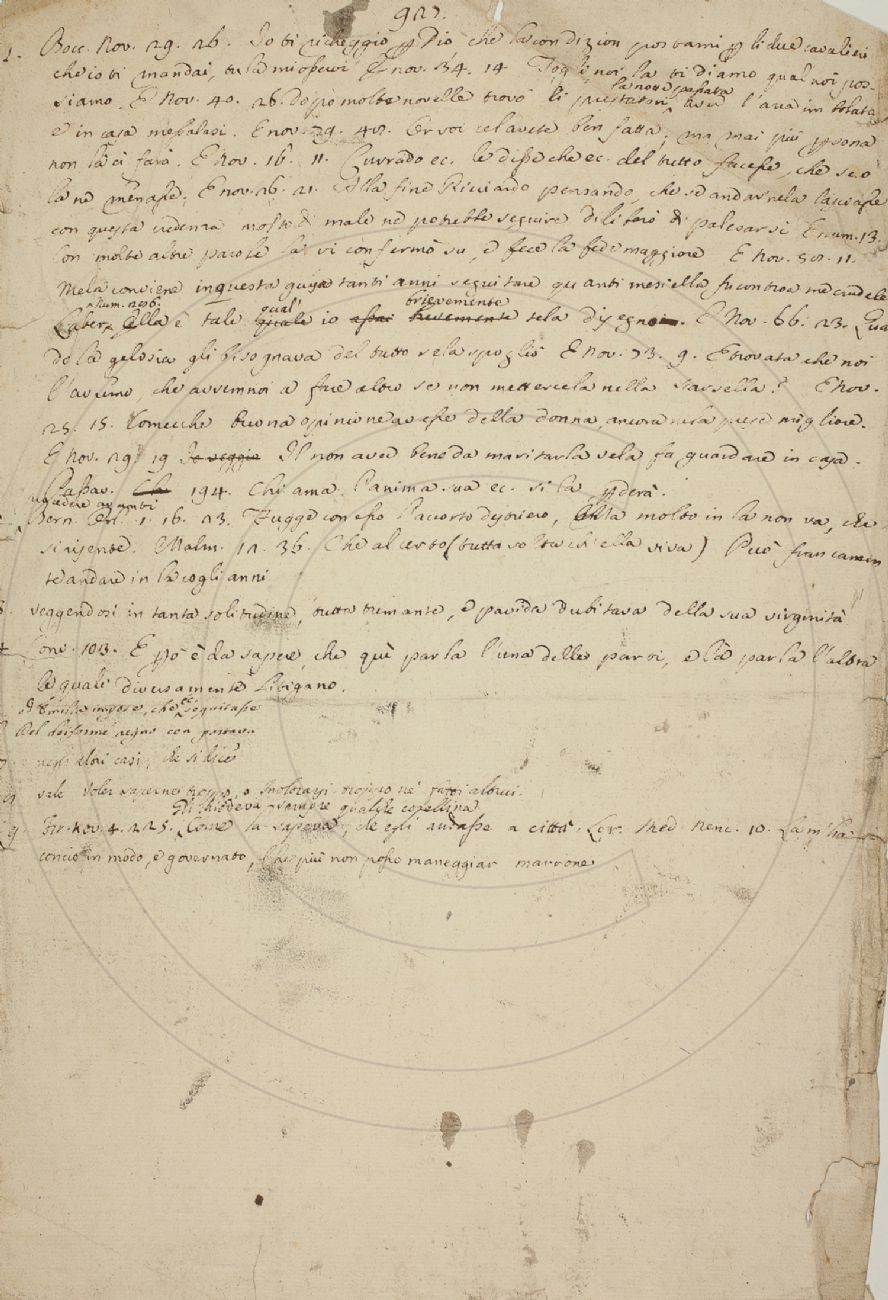 927.
1. Bocc. Nov. 29. 26. Io ti richeggio p Dio, che la condizion postami p li due cavalieri
che io ti mandai, tu la mi osservi. E nov. 34. 14 Toglinoi la ti diamo qual noi pos-
la notte passata
siamo. E Nov. 40. 26. dopo molte novelle trovò li prestatori aver l'arca imbolata
e in casa messalasi. E nov. 79. 40. Or voi ce l'avete ben fatta; ma mai più psona
non la ci farà. E Nov. 16. 11. Currado ec. le disse che ec. del tutto facesse, che seco
la ne menasse. E nov. 26. 21. Alla fine Ricciardo pensando, che se andar ne la lasciasse
con questa credenza molto di male ne potrebbe seguire diliberò di palesarsi E num. 13.
Con molte altre parole la vi confermò su, e fece la fede maggiore E Nov. 50. 11.
Mela conviene in questa guisa tanti anni seguitare quanti mesi ella fu contro a me crudele
num. 296.
qual
brievemente
Laber. Ella è tale quale io assai brevemente te la disegno. E Nov. 66. 23. Qua
do la gelosia gli bisognava del tutto se la spogliò E nov. 73. 9. E trovata che noi
l'avremo, che avrem noi a fare altro se non mettercela nella scarsella? E Nov.
25. 15. Comecche buona opinione avesse della donna, ancora ne la prese migliore.
E Nov. 29. 19 Io veggio Il non aver bene da maritarla ve la fa guardare in casa.
Passav. 194. Chi ama l'anima sua ec. si la pderà.
Bern. Orl. 1. 16. 23. Fugge con esso l'accorto destriero, Ma molto in la non va, che
si risente. Malm. 12. 36. Che al certo (tutta volta ch'ella viva) Può francamen
te andare in la cogli anni
veggendosi in tanta solitudine, tutta tremante, e pavida dubitava della sua virginità
Conv. 103. E pò è da sapere, che quì parla l'una delle parti, e là parla l'altra
le quali diversamente litigano.
ed Emilia impose, che seguitasse
negli altri casi, che si dice
vale Voler saperne troppo, o inoltrarsi troppo ne' fatti altrui.
Gli chiedeva sempre qualche cosellina
Fir. Nov. 4. 225. Come la sapeva, che egli andasse a città. Lor. Med. Nenc. 10. La m'ha
concio in modo, e governato, più non posso maneggiar marrone